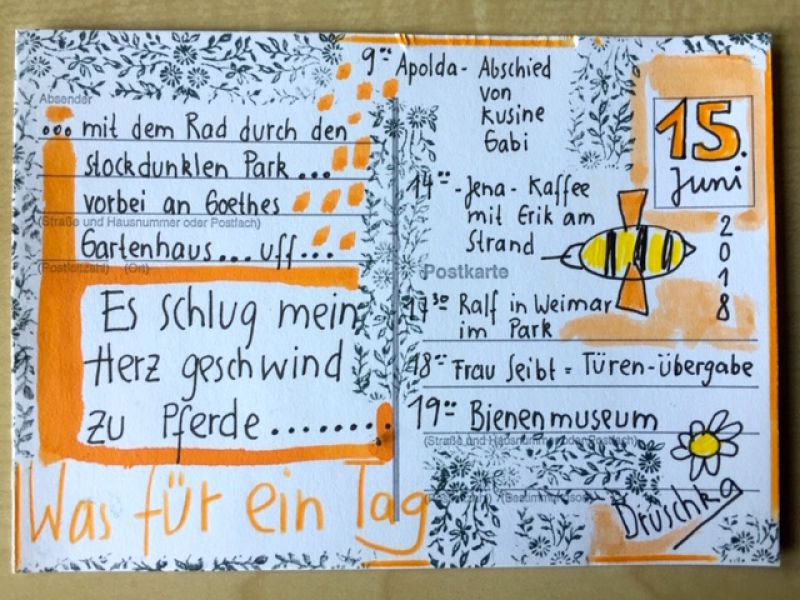 Absender
... mit dem Rad durch den
stockdunklen Park ...
vorbei an Goethes
(Straße und Hausnummer oder Postfach)
Gartenhaus... uff...
(Postleitzahl) (Ort)
Es schlug mein
Herz geschwind
zu Pferde........
Was für ein Tag
9°° Apolda - Abschied
von
Kusine
Gabi
14°° - Jena - Kaffee
mit Erik am
Strand
Postkarte
17³⁰ Ralf in Weimar
im Park
18°° Frau Seibt = Türen-Übergabe
19°° Bienenmuseum
(Straße und Hausnummer oder Postfach)
15.
Juni
2
0
1
8
Druschka